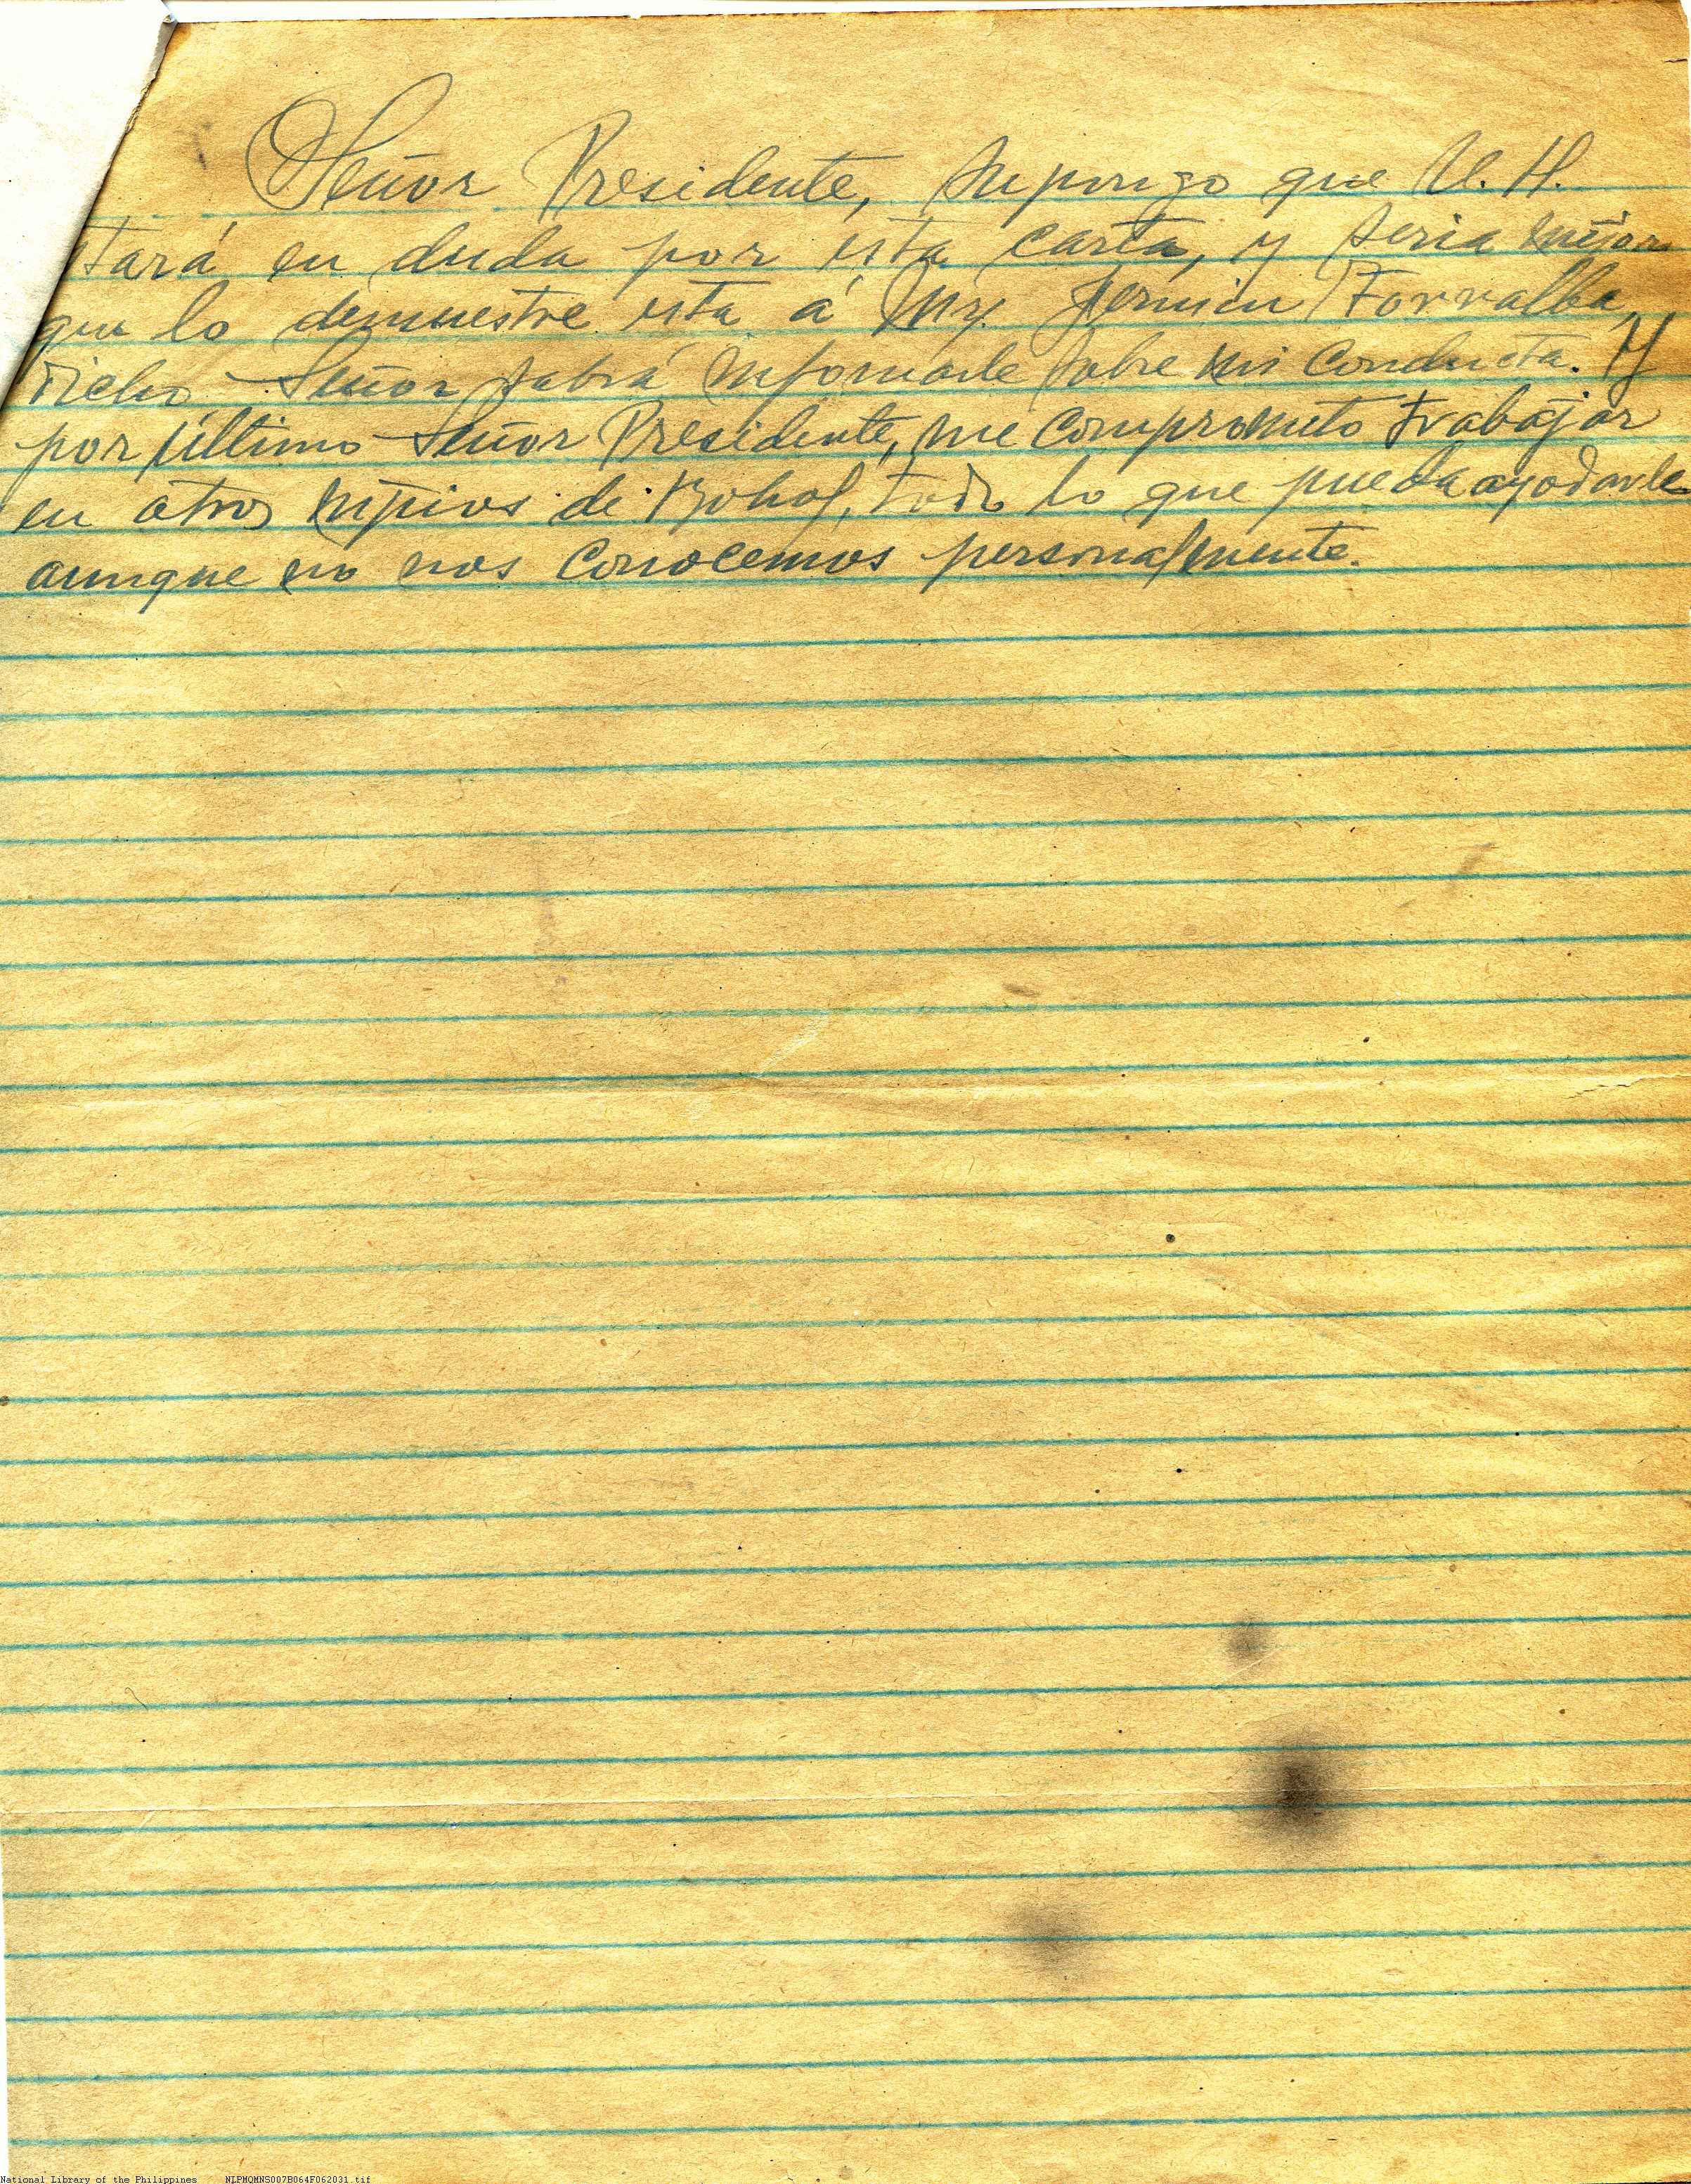 Señor Presidente, supongo que U. H.
stará en duda por esta carta, y seria mejor
que lo demuestre esta á Mr. Fermin Torralba,
Dicho Señor sabrá informarle sobre mi conducta. Y
por último Señor Presidente, me comprometo trabajar
en otros mpios de Bohol, todo lo que pueda ayodarle
aunque no nos conocemos personalmente.
National Library of the Philippines NLPMQMNS007B064F062031.tif